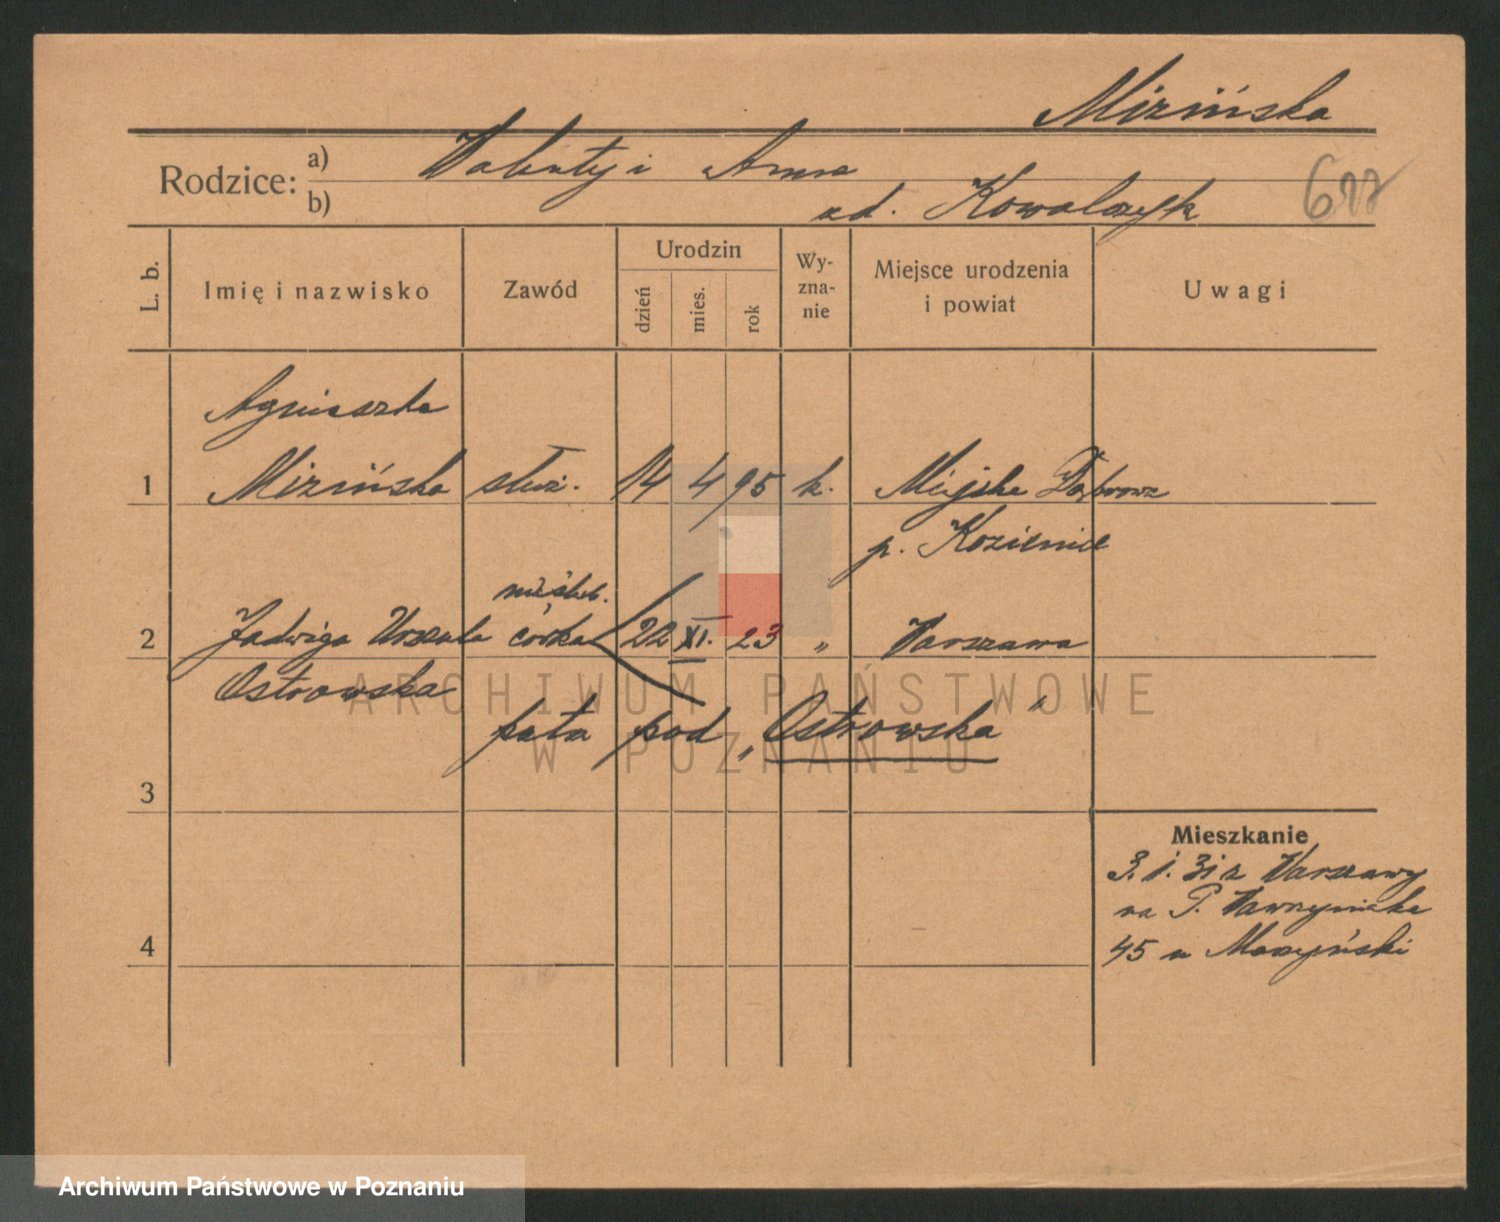 Mizińska
Rodzice:
a) Walenty i Anna
b) zd. Kowalczyk
L. b.
Imię i nazwisko
Zawód
Urodzin
dzień
mies.
rok
Wy-
zna-
nie
Miejsce urodzenia
i powiat
Uwagi
Agnieszka
1 Mizińska służ. 14 4 95 k. Miejska Dąbrowa
p. Kozienice
nieślub.
2 Jadwiga Urszula córka 22 XI. 23 „ Warszawa
Ostrowska
pata pod „Ostrowska"
3
Mieszkanie
3. 1. 31 z Warszawy
na P. Wawrzyniaka
4
45 u Maczyński
ARCHIWUM PAŃSTWOWE
W POZNANIU
Archiwum Państwowe w Poznaniu